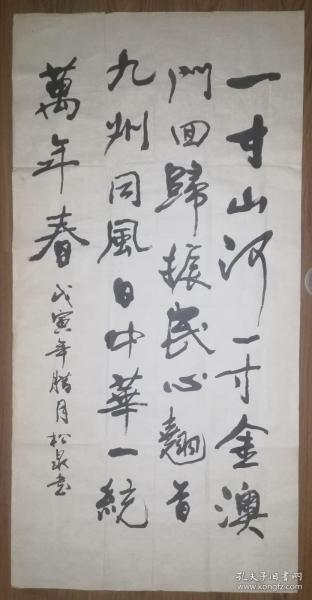 一寸山河一寸金澳
門回歸振民心翹首
九州同風日中華一統
萬年春
戊寅年腊月松泉书
孔夫子旧书网
www.kongfz.com